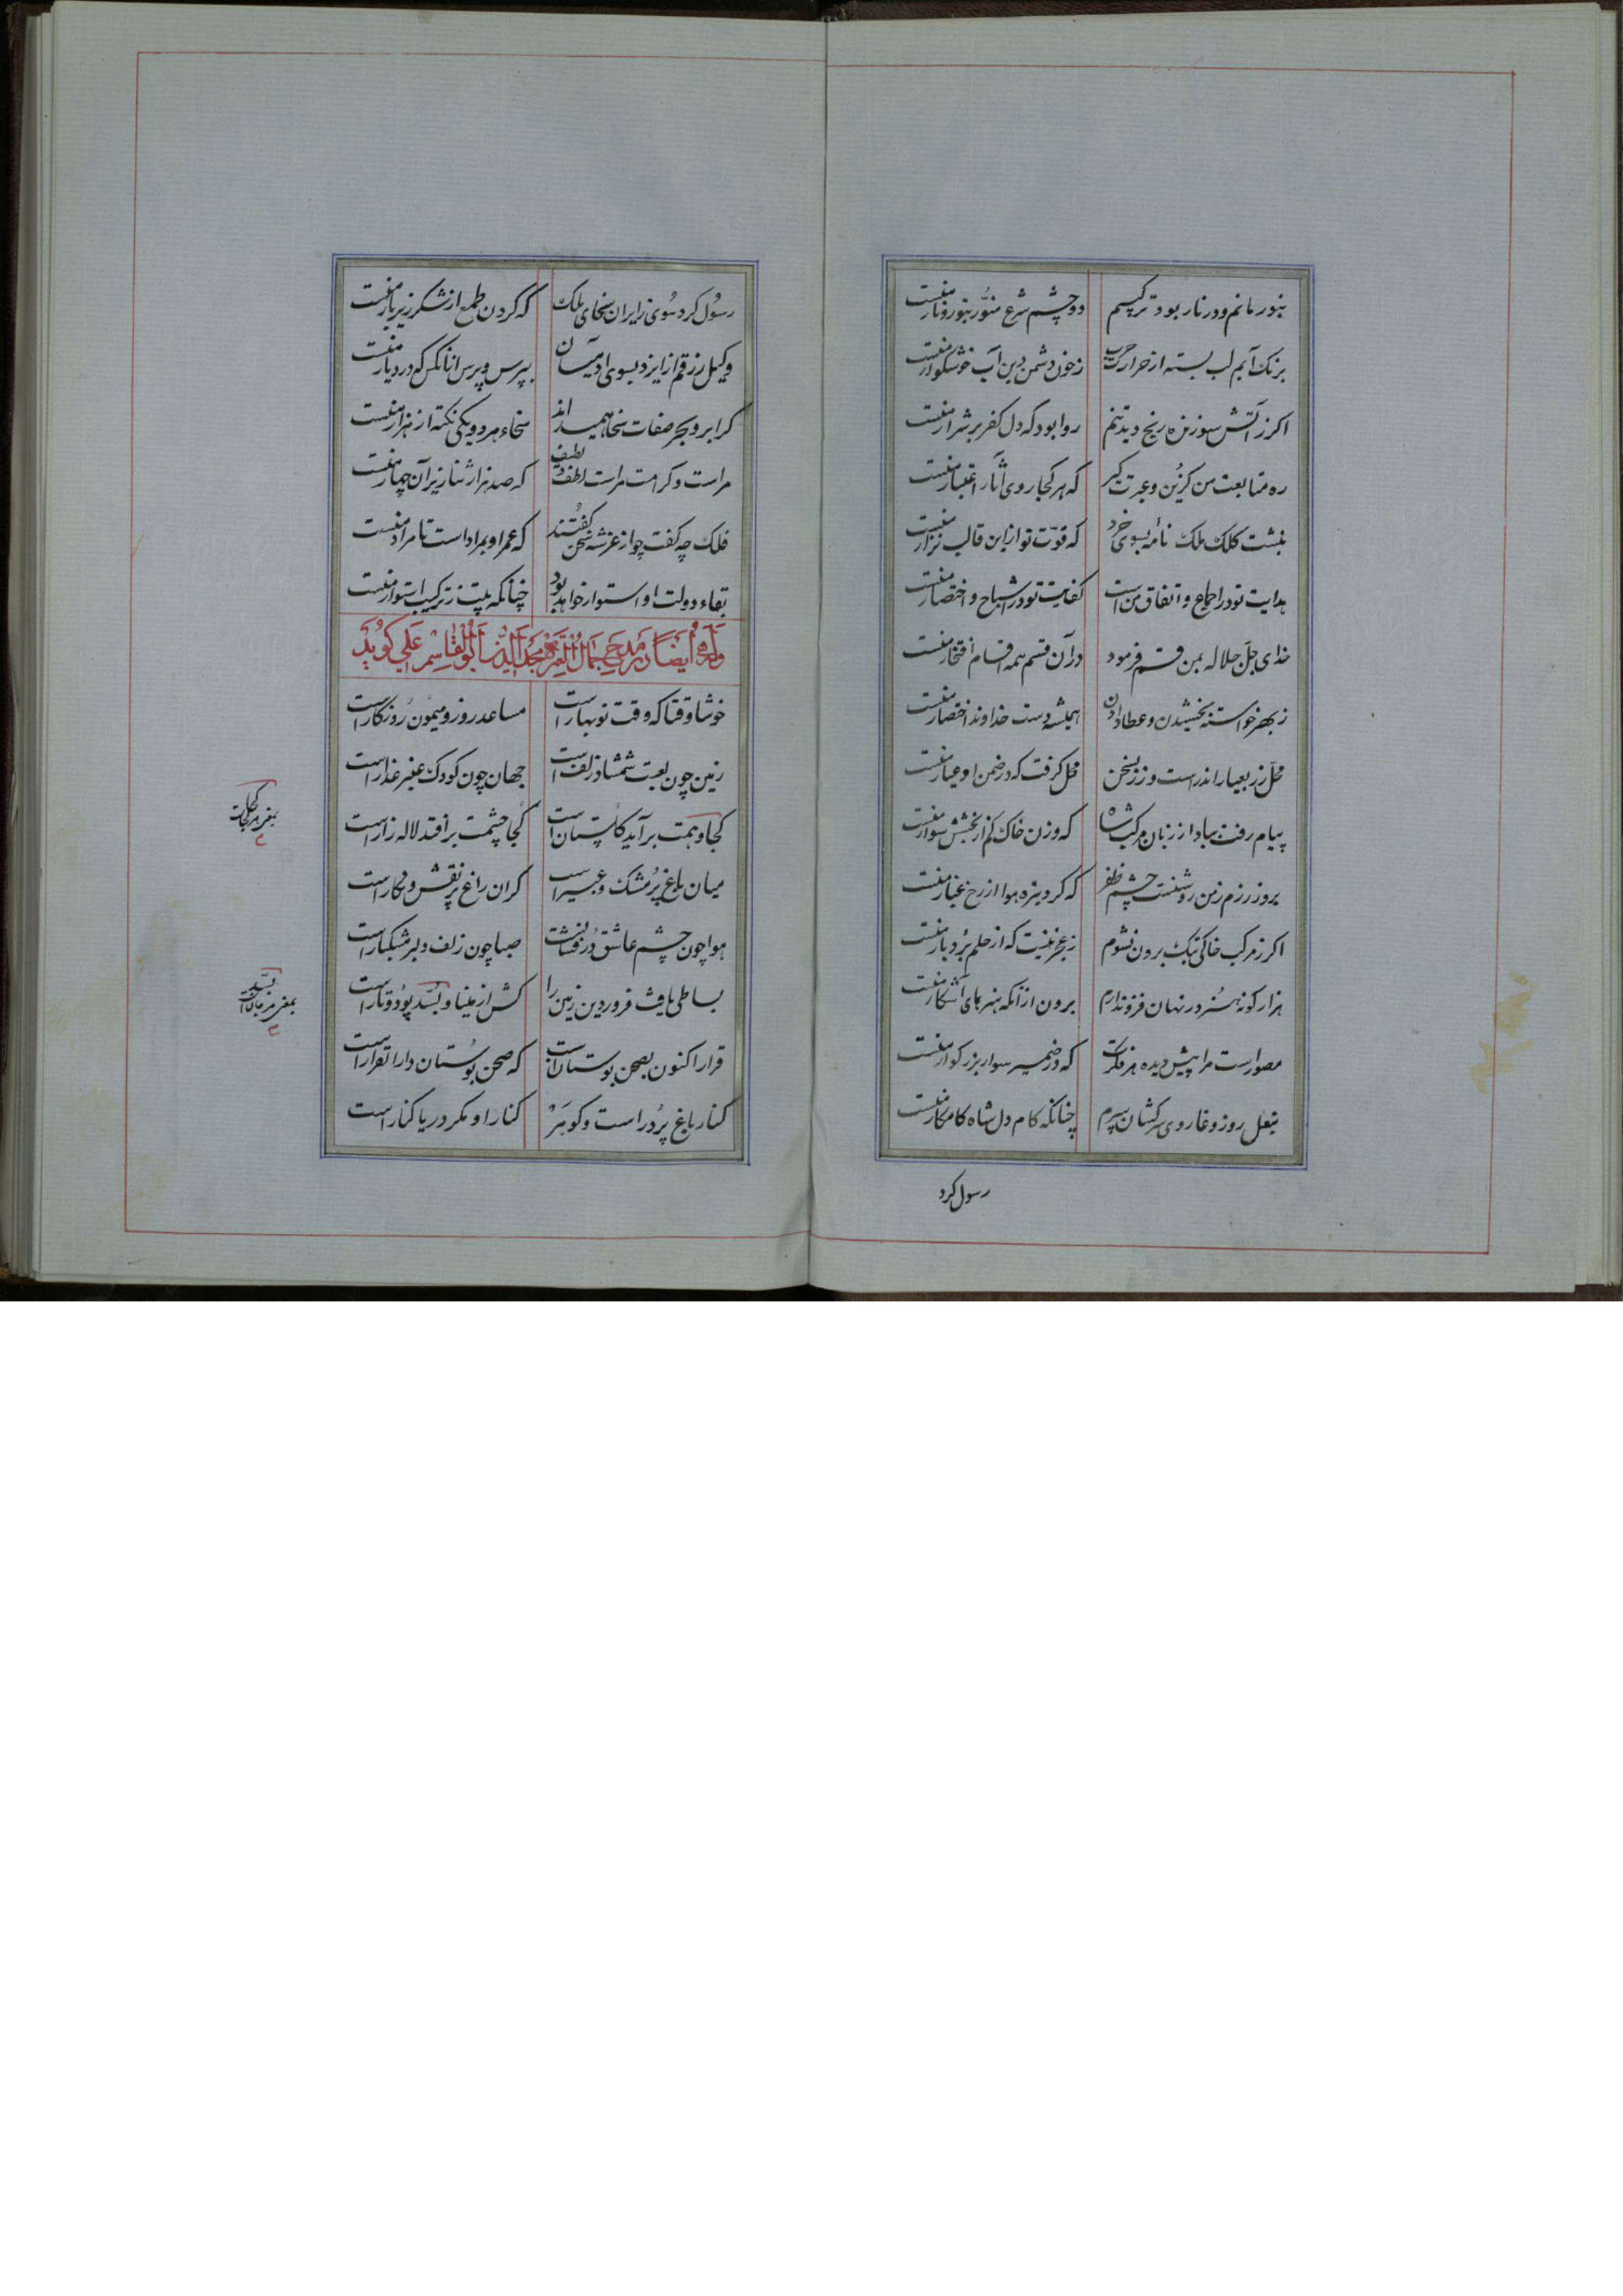 بنور مانم و در نار بود ترکیبم دو چشم شرع منور بنور و نار منست
برنک آبم لب بسته از حرارت حرب ز خون دشمن دین آب خوشکوار منست
اکر ز آتش سوزنده رنج دید تنم روا بود که دل کفر بر شرار منست
ره متابعت من کزین و عبرت کیر که هر کجا روی آثار اعتبار منست
نبشت کلک ملک نامهٔ بسوی خرد که قوّت تو ازین قالب نزار منست
هدایت تو در اجماع و اتفاق من است کفایت تو در اشباح و اختصار منست
خدای جلّ جلاله بمن قسم فرمود در آن قسم همه اقسام افتخار منست
ز بهر خواسته بخشیدن و عطا دادن همیشه دست خداوند اختصار منست
محلّ زر بعیار اندر است و زر سخن محل کرفت که در ضمن او عیار منست
پیام رفت بباد از زبان مرکب شاه که وزن خاک کم از بخشش سوار منست
بروز رزم ز من روشنست چشم ظفر که کرد تیره هوا از رخ غبار منست
اکر ز مرکب خاکی بتک برون نشوم ز عجز نیست که از حلم بردبار منست
هزار کونه هنر در نهان فزون دارم برون از آنکه هنرهای آشکار منست
مصور است مرا پیش دیده هر فکرت که در ضمیر سوار بزرکوار منست
بنعل روز وغا روی سرکشان سپرم چنانکه کام دل شاه کامکار منست
رسول کرد
رسول کرد سوی زایران سخای ملک که کردن طمع از شکر زیر بار منست
وکیل رزقم از ایزد بسوی آدمیان بپرس و پرس از آنکس که در دیار منست
کر ابر و بحر صفات سخا همی‌دانند سخاء هر دو یکی نکته از هزار منست
مراست دکرامت مراست لطف و لطیف که صد هزار ثنا زیر آن چهار منست
فلک چه کفت چو از عز شه سخن کفتند که عمر او بمراد است تا مدار منست
بقاء دولت او استوار خواهد بود چنانکه بیت ز ترکیب استوار منست
وله ایضاً در مدح جمال العتره مجدالدین ابوالقاسم علی کوید
خوشا وقتا که وقت نوبهار است مساعد روز و میمون روزکار است
زمین چون لعبت شمشاد زلف است جهان چون کودک عنبر عذار است
کجا وهمت برآید کلستان است کجا چشمت برافتد لاله زار است
میان باغ پر مشک و عبیر است کران راغ پر نقش و نکار است
هوا چون چشم عاشق در فشانست صبا چون زلف دلبر مشکبار است
بساطی بافت فروردین زمین را کش از مینا و بُسّد پود و تار است
قرار اکنون بصحن بوستان است که صحن بوستان دار القرار است
کنار باغ پر در است و کوهر کنار او مکر دریا کنار است
بمعنی هرکجا است
بسّد
بمعنی مرجان است